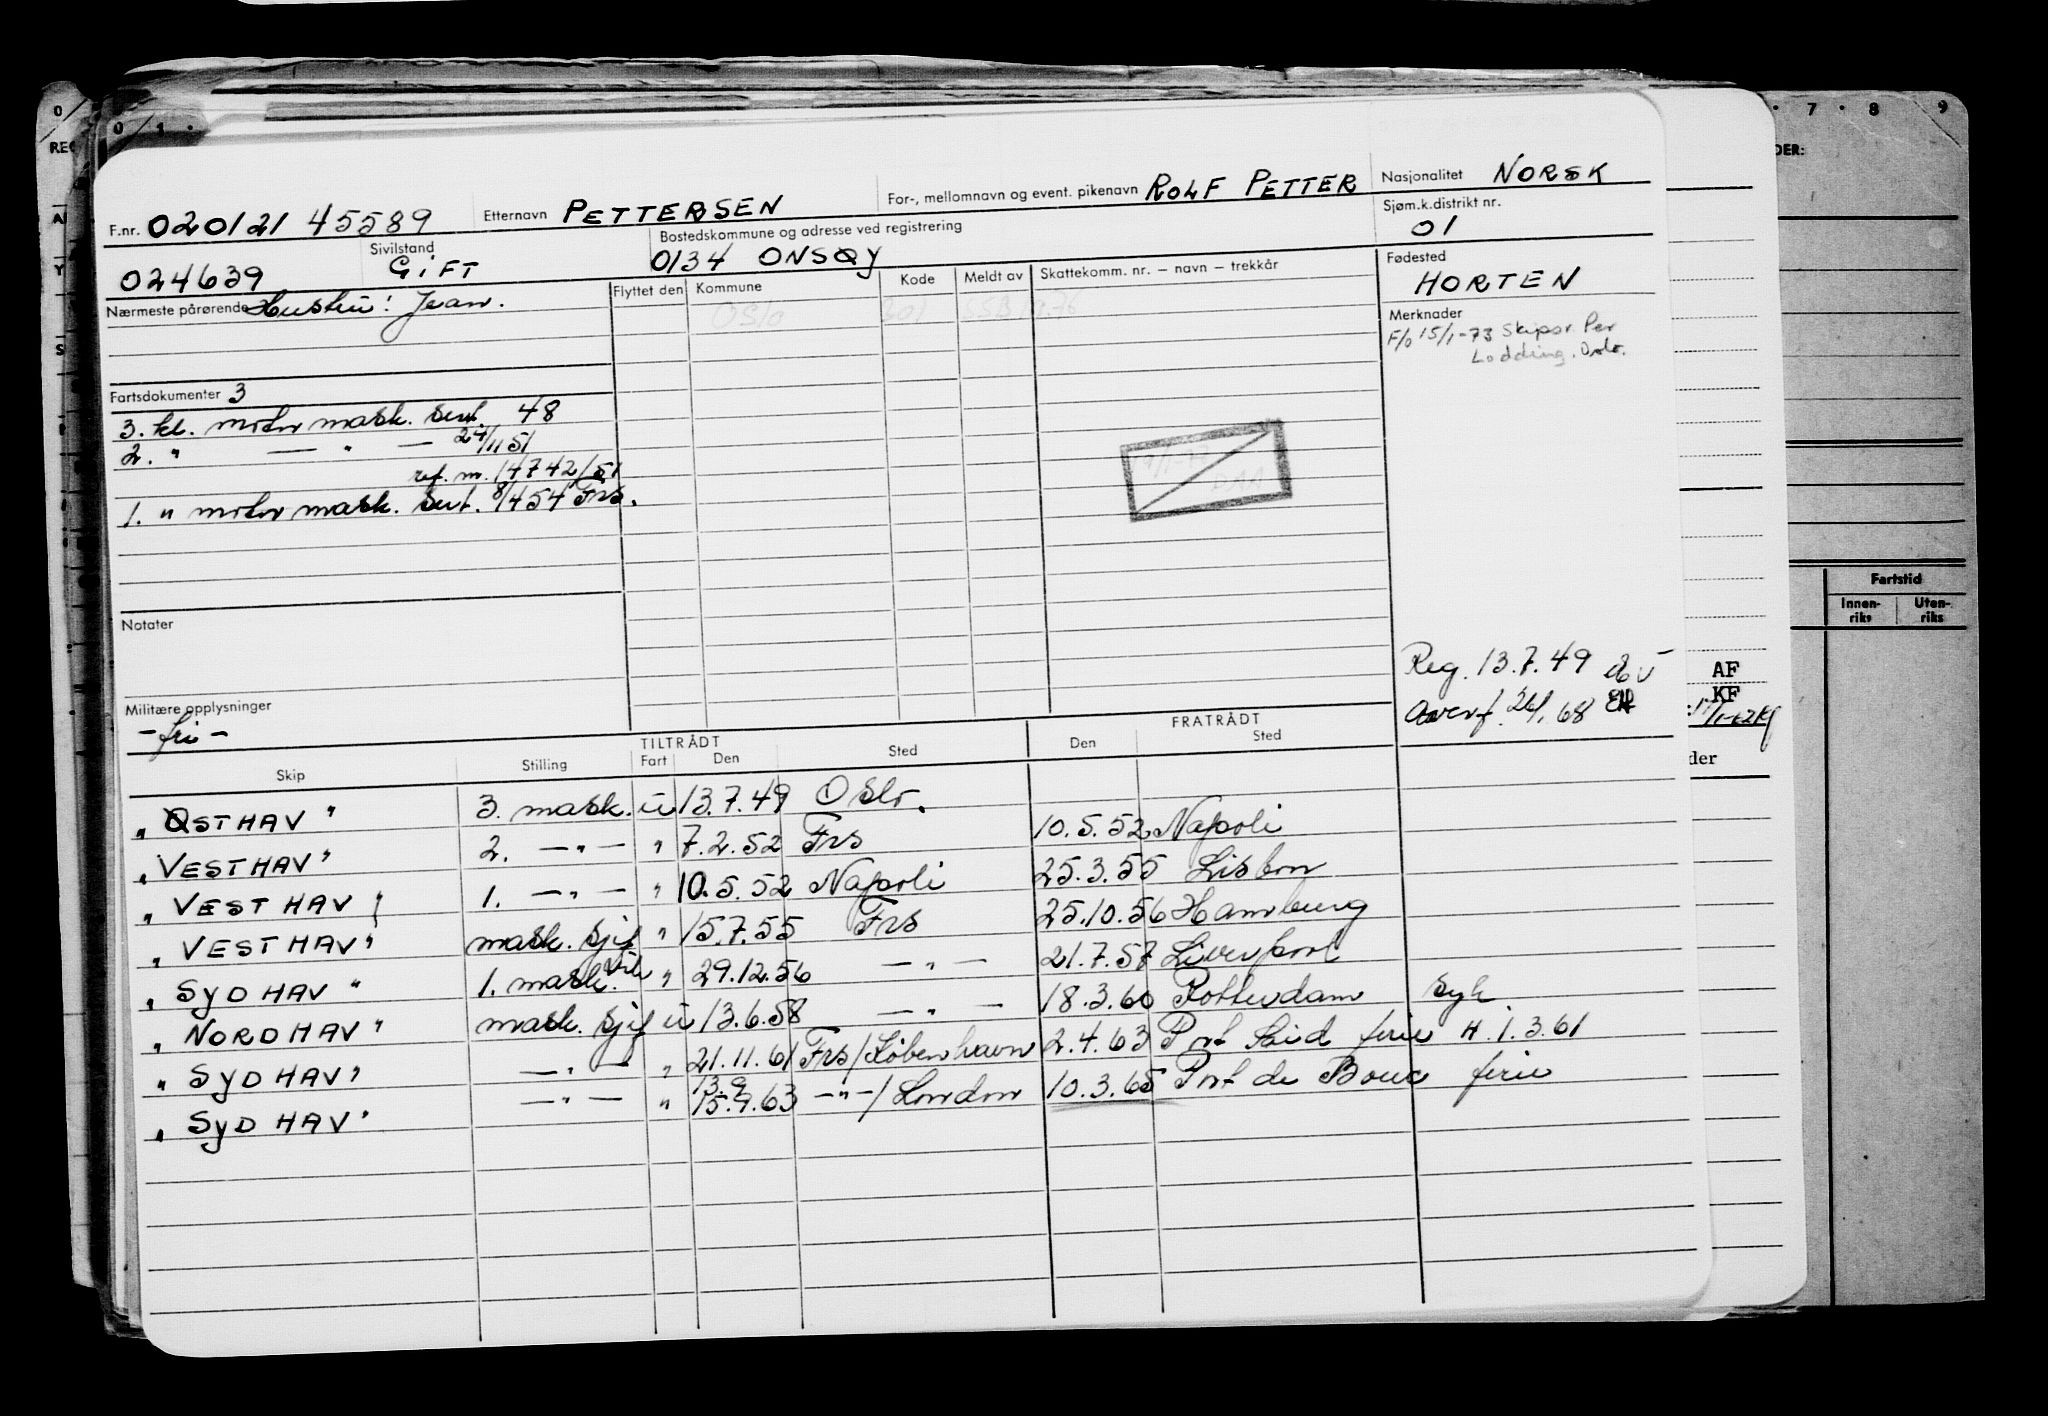 F.nr. 020121 45589 Etternavn PETTERSEN For-, mellomnavn og event. pikenavn ROLF PETTER Nasjonalitet NORSK
024639 Sivilstand GIFT Bostedskommune og adresse ved registrering 0134 ONSØY Sjøm.k.distrikt nr. 01
Nærmeste pårørende Hustru: Jean. Flyttet den Kommune Kode Meldt av Skattekomm. nr. – navn – trekkår Fødested HORTEN
Oslo 301 SSB 1976
Merknader
F/o 15/1-73 Skipsr. Per
Lodding. Oslo.
Fartsdokumenter 3
3. kl. motor mask. sert. 48
2. " — " — 24/11 51
ref. m. 14742/51
1. " motor mask. sert. 8/4 54 Frs.
DAA
Notater
Reg. 13.7.49
Overf. 26/1 68
Militære opplysninger
- fri -
TILTRÅDT FRATRÅDT
Skip Stilling Fart Den Sted Den Sted
"ØSTHAV" 3. mask. u 13.7.49 Oslo.
"VESTHAV" 2. —"— " 7.2.52 Frs 10.5.52 Napoli
"VESTHAV" 1. —"— " 10.5.52 Napoli 25.3.55 Lisbon
"VESTHAV" mask. sjef " 15.7.55 Frs 25.10.56 Hamburg
"SYDHAV" 1. mask. vik " 29.12.56 —"— 21.7.57 Liverpool
"NORDHAV" mask. sjef u 13.6.58 —"— 18.3.60 Rotterdam syk
"SYDHAV" —"— " 21.11.61 Frs/København 2.4.63 Port Said ferie H. 1.3.61
"SYDHAV" —"— " 13.9 15.9.63 —"—/London 10.3.65 Port de Bouc ferie
0 1
7 8 9
DER:
Fartstid
Innen-riks Uten-riks
AF
KF
der